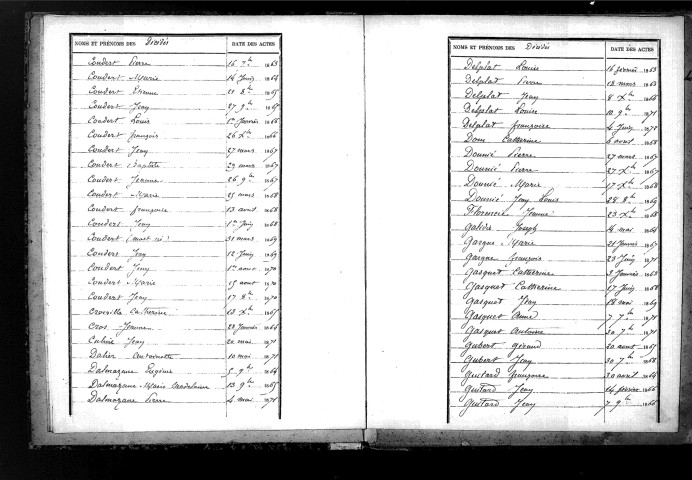 NOMS ET PRÉNOMS DES Décédés DATE DES ACTES
Coudert Pierre 16 7bre 1863
Coudert Marie 14 Juin 1864
Coudert Etienne 21 8bre 1865
Coudert Jean 27 9bre 1865
Coudert Louis 1er Janvier 1866
Coudert François 26 Xbre 1866
Coudert Jean 27 mars 1867
Coudert Baptiste 29 mars 1867
Coudert Jeanne 26 9bre 1867
Coudert Marie 25 mars 1868
Coudert Françoise 13 avril 1868
Coudert Jean 1er Juin 1868
Coudert (mort né) 31 mars 1869
Coudert Jean 12 Juin 1869
Coudert Jean 1er aout 1870
Coudert Marie 15 aout 1870
Coudert Jean 17 8bre 1870
Croiville Catherine 18 Xbre 1865
Cros Jeanne 28 Janvier 1866
Jean 20 mai 1871
Dalier Antoinette 10 mai 1871
Dalmazane Eugène 5 9bre 1864
Dalmazane Marie Madeleine 13 9bre 1865
Dalmazane Pierre 4 mai 1871
NOMS ET PRÉNOMS DES Décédés DATE DES ACTES
Delplat Louise 16 février 1863
Delplat Pierre 18 mars 1863
Delplat Jean 8 Xbre 1866
Delplat Louise 10 9bre 1871
Delplat Françoise 4 Juin 1872
Dom Catherine 6 avril 1868
Donnié Pierre 27 mars 1867
Donnié Pierre 27 Xbre 1867
Donnié Marie 17 Xbre 1868
Donnié Jean Louis 28 8bre 1869
Florence Jeanne 23 Xbre 1868
Galidie Joseph 4 mai 1864
Gargne Marie 21 Janvier 1867
Gargne François 23 Juin 1871
Gasquet Catherine 3 Janvier 1868
Gasquet Catherine 17 Juin 1868
Gasquet Jean 18 mai 1869
Gasquet Anne 7 7bre 1871
Gasquet Antoine 30 7bre 1871
Gubert Géraud 20 aout 1867
Gubert Jean 30 7bre 1868
Guitard Françoise 20 avril 1864
Guitard Jean 14 février 1866
Guitard Jean 7 9bre 1866